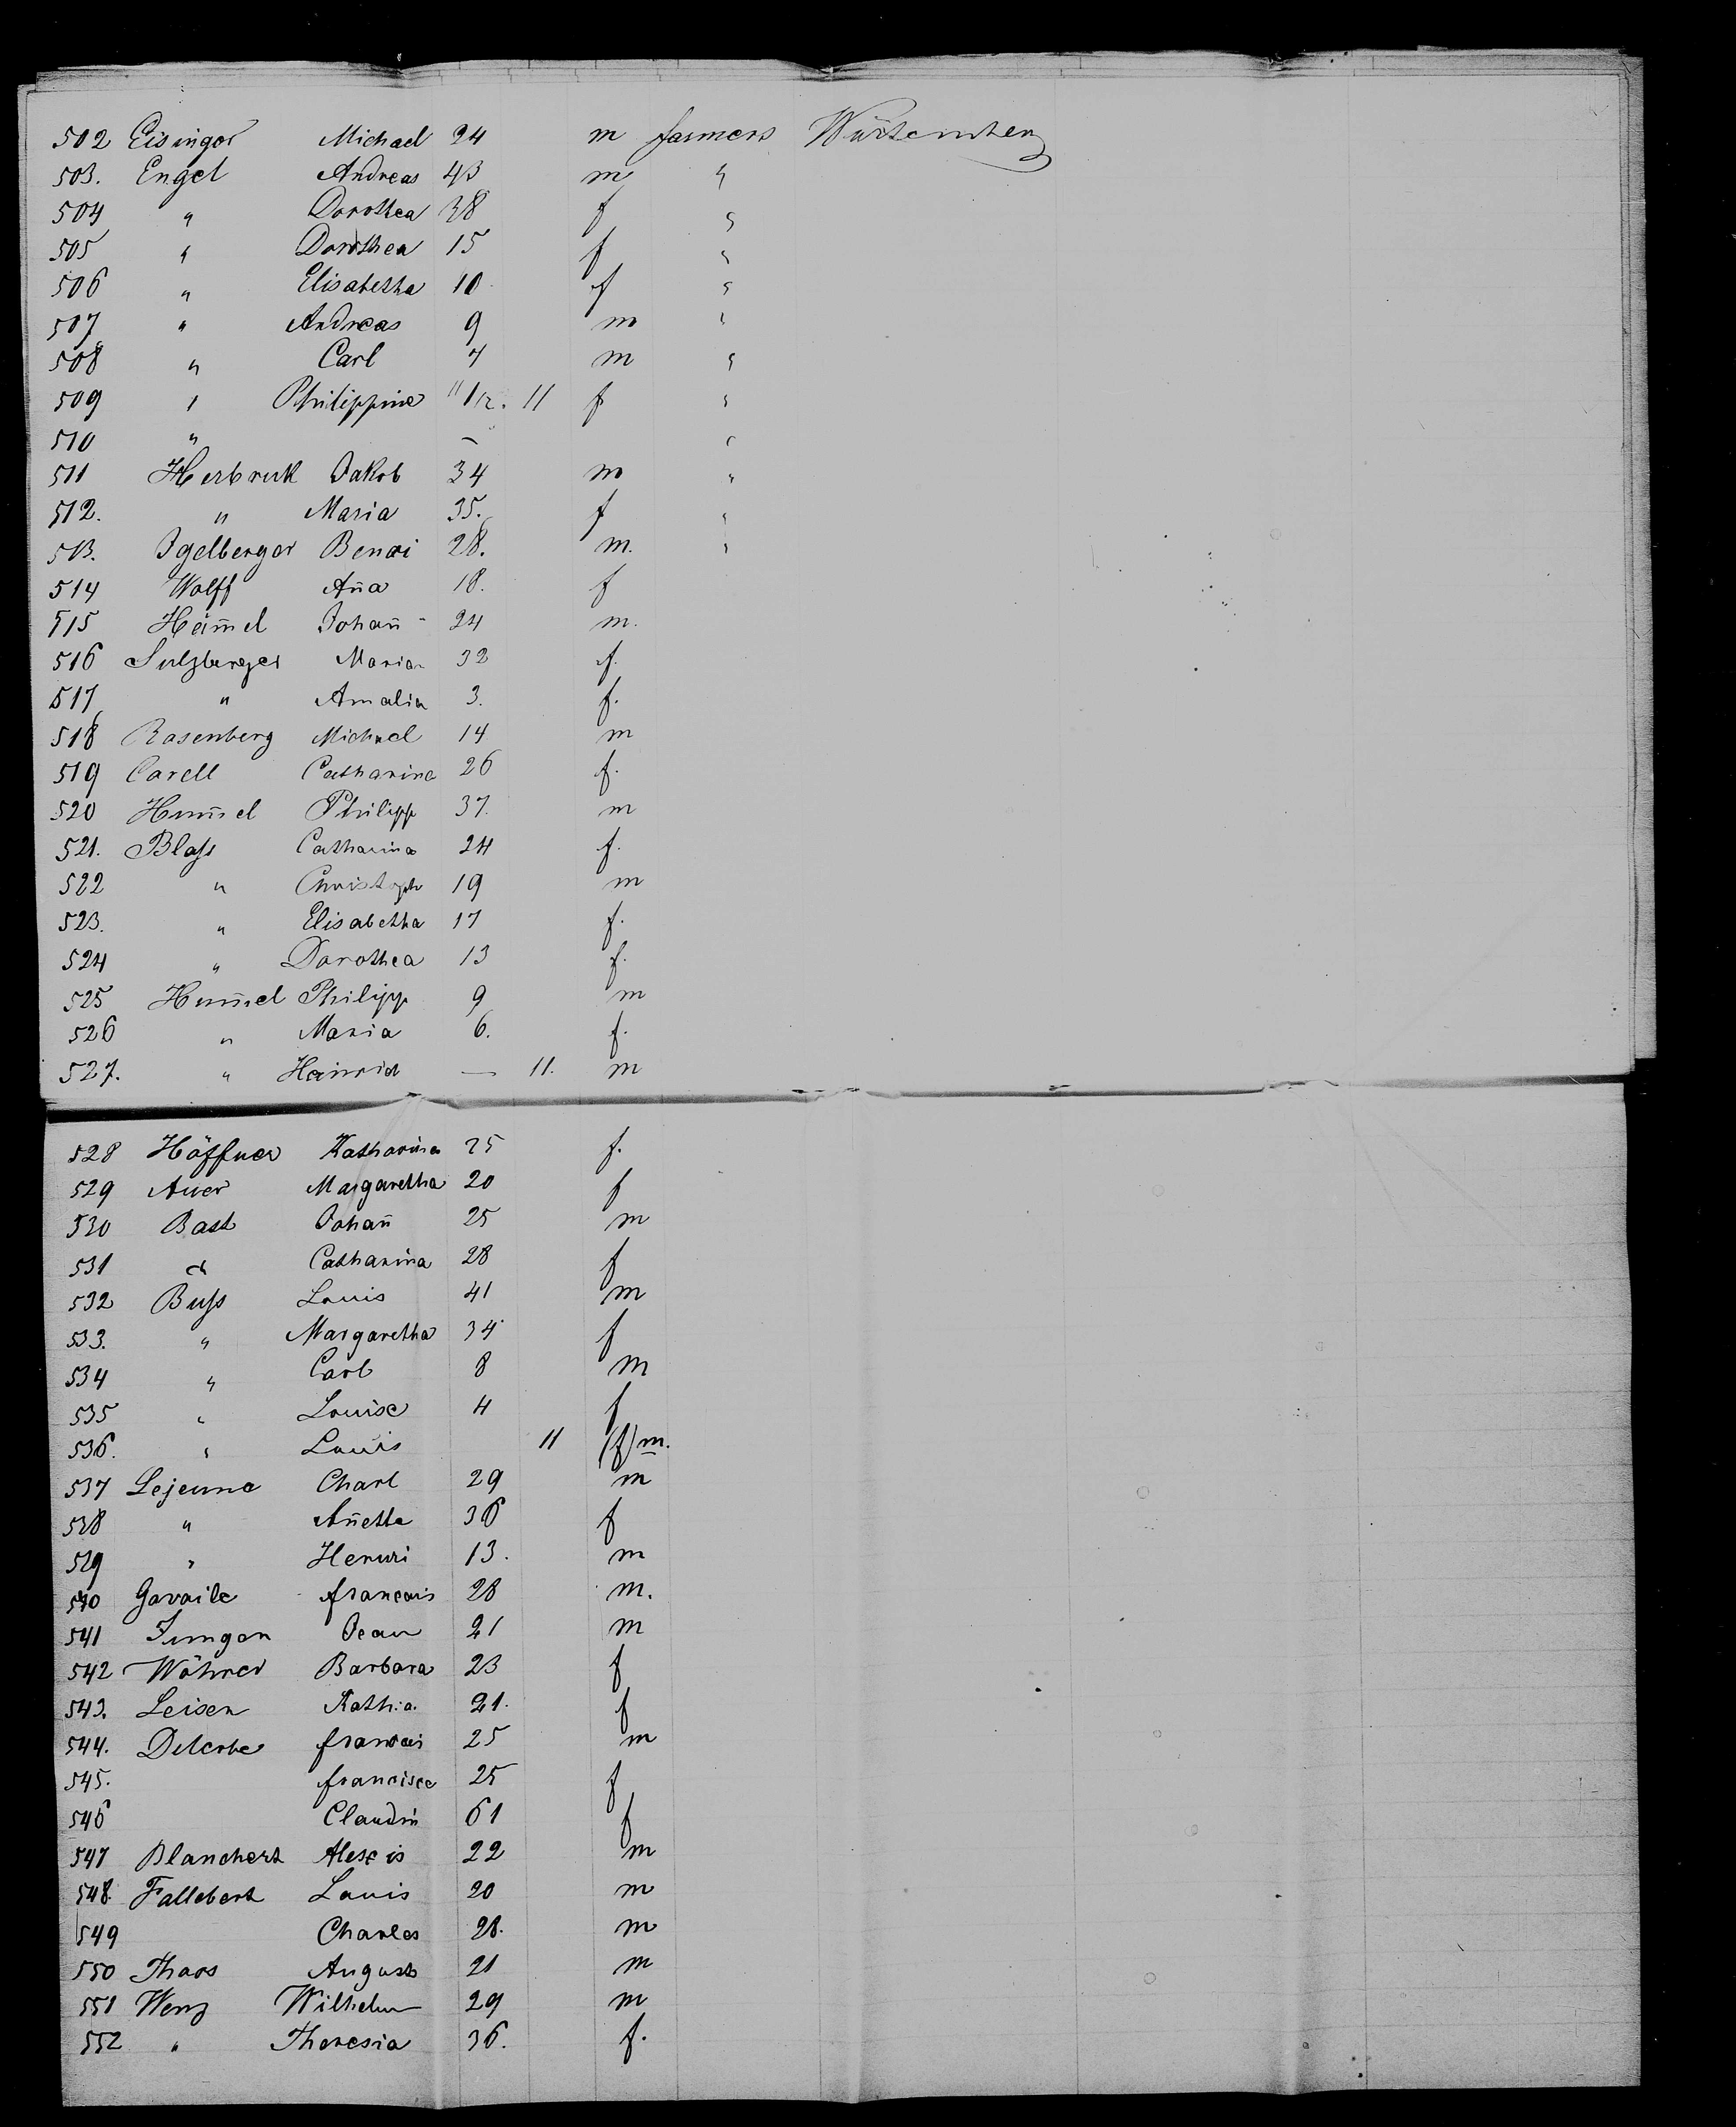 502 Eisinger Michael 24 m farmers Würtemberg
503. Engel Andreas 43 m "
504 " Dorothea 38 f "
505 " Dorothea 15 f "
506 " Elisabetha 10 f "
507 " Andreas 9 m "
508 " Carl 7 m "
509 " Philippine 11/12. 11 f "
510 " — "
511 Herbruk Jakob 34 m "
512. " Maria 35. f "
513. Igelberger 28. m. "
514 Wolff Am̄a 18. f
515 Heim̄el Johan̄ 24 m.
516 Sulzberger Maria 32 f.
517 " Amalia 3. f.
518 Rosenberg Michael 14 m
519 Carell Catharina 26 f.
520 Hum̄el Philipp 37. m
521. Blass Catharina 24 f.
522 " Christoph 19 m
523. " Elisabetha 17 f.
524 " Dorothea 13 f.
525 Hum̄el Philipp 9 m
526 " Maria 6. f.
527. " Heinrich — 11. m
528 Höffner Katharina 25 f.
529 Auer Margaretha 20 f
530 Bast Johan̄ 25 m
531 " Catharina 28 f
532 Buss Louis 41 m
533. " Margaretha 34 f
534 " Carl 8 m
535 " Louise 4 f
536. " Louis 11 (f) m.
537 Lejeune Charl 29 m
538 " An̄etta 36 f
539 " Henri 13. m
540 Gavaile francois 28 m.
541 Jean 21 m
542 Wöhrer Barbara 23 f
543. Leisen Kath:a. 21. f
544. francois 25 m
545. francisca 25 f
546 Claudin 61 f
547 Blanchert Alexis 22 m
548. Fallebert Louis 20 m
549 Charles 28. m
550 Thoos August 21 m
551 Wenz Wilhelm 29 m
552 " Theresia 36. f.